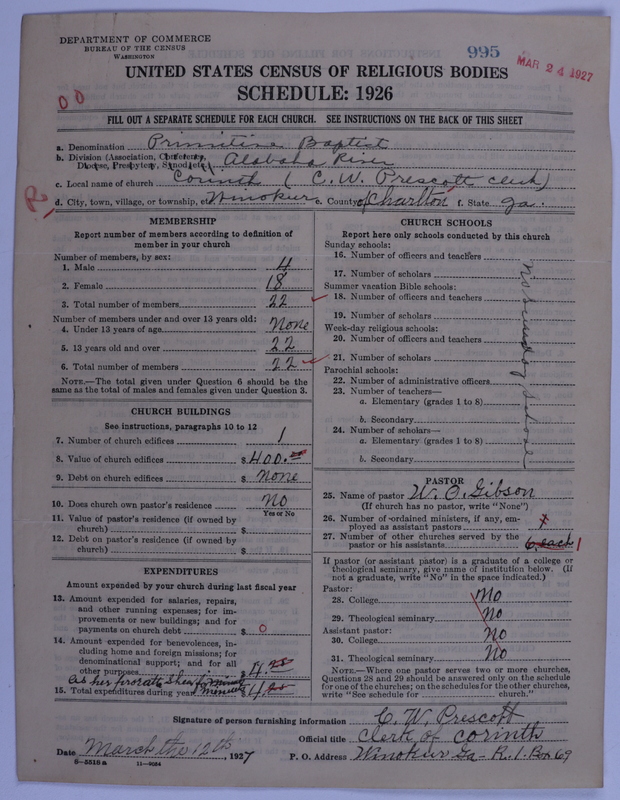 DEPARTMENT OF COMMERCE
BUREAU OF THE CENSUS
WASHINGTON
995
MAR 24 1927
UNITED STATES CENSUS OF RELIGIOUS BODIES
SCHEDULE: 1926
FILL OUT A SEPARATE SCHEDULE FOR EACH CHURCH. SEE INSTRUCTIONS ON THE BACK OF THIS SHEET
a. Denomination Primitive Baptist
b. Division (Association, Conference, Diocese, Presbytery, Synod, etc.) Alabaha River
c. Local name of church Corinth (C. W. Prescott clerk)
d. City, town, village, or township, etc. Winokur e. County of Charlton f. State Ga.
MEMBERSHIP
Report number of members according to definition of
member in your church
Number of members, by sex:
1. Male 4
2. Female 18
3. Total number of members 22
Number of members under and over 13 years old:
4. Under 13 years of age None
5. 13 years old and over 22
6. Total number of members 22
NOTE.—The total given under Question 6 should be the
same as the total of males and females given under Question 3.
CHURCH BUILDINGS
See instructions, paragraphs 10 to 12
7. Number of church edifices 1
8. Value of church edifices $400.00
9. Debt on church edifices $ None
10. Does church own pastor's residence NO
Yes or No
11. Value of pastor's residence (if owned by
church) $
12. Debt on pastor's residence (if owned by
church) $
EXPENDITURES
Amount expended by your church during last fiscal year
13. Amount expended for salaries, repairs,
and other running expenses; for im-
provements or new buildings; and for
payments on church debt $ 0
14. Amount expended for benevolences, in-
cluding home and foreign missions; for
denominational support; and for all
other purposes $ 4.
as her prorate share for minutes
15. Total expenditures during year $ 4
CHURCH SCHOOLS
Report here only schools conducted by this church
Sunday schools:
16. Number of officers and teachers
17. Number of scholars
Summer vacation Bible schools:
18. Number of officers and teachers
19. Number of scholars
Week-day religious schools:
20. Number of officers and teachers
21. Number of scholars
Parochial schools:
22. Number of administrative officers
23. Number of teachers—
a. Elementary (grades 1 to 8)
b. Secondary
24. Number of scholars—
a. Elementary (grades 1 to 8)
b. Secondary
no sunday school
PASTOR
25. Name of pastor W. O. Gibson
(If church has no pastor, write "None")
26. Number of ordained ministers, if any, em-
ployed as assistant pastors
27. Number of other churches served by the
pastor or his assistants 6 each 1
If pastor (or assistant pastor) is a graduate of a college or
theological seminary, give name of institution below. (If
not a graduate, write "No" in the space indicated.)
Pastor:
28. College No
29. Theological seminary No
Assistant pastor:
30. College No
31. Theological seminary No
NOTE.—Where one pastor serves two or more churches,
Questions 28 and 29 should be answered only on the schedule
for one of the churches; on the schedules for the other churches,
write "See schedule for church."
Signature of person furnishing information C. W. Prescott
Official title Clerk of Corinth
Date March the 12th, 1927
P. O. Address Winokur Ga - R. 1. Box 69
8—5518 a 11—9084